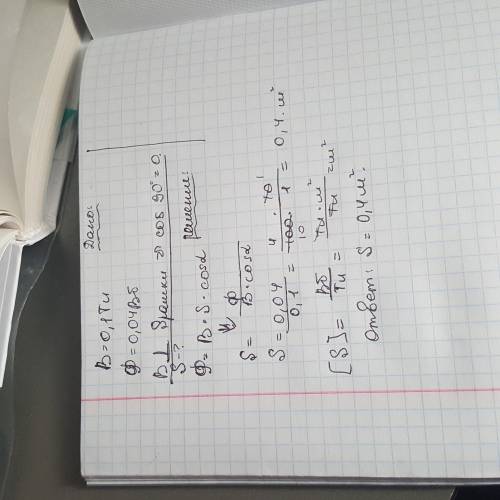 Дано:
B = 0,1 Тл
Ф = 0,04 Вб
B ⊥ рамки ⇒ cos 90° = 0
S - ?
решение:
Ф = B · S · cosα
S = Ф / B · cosα
S = 0,04 / 0,1 = 4 / 100 · 10 / 1 = 0,4 м²
[S] = Вб / Тл = Тл · м² / Тл = м²
Ответ: S = 0,4 м².